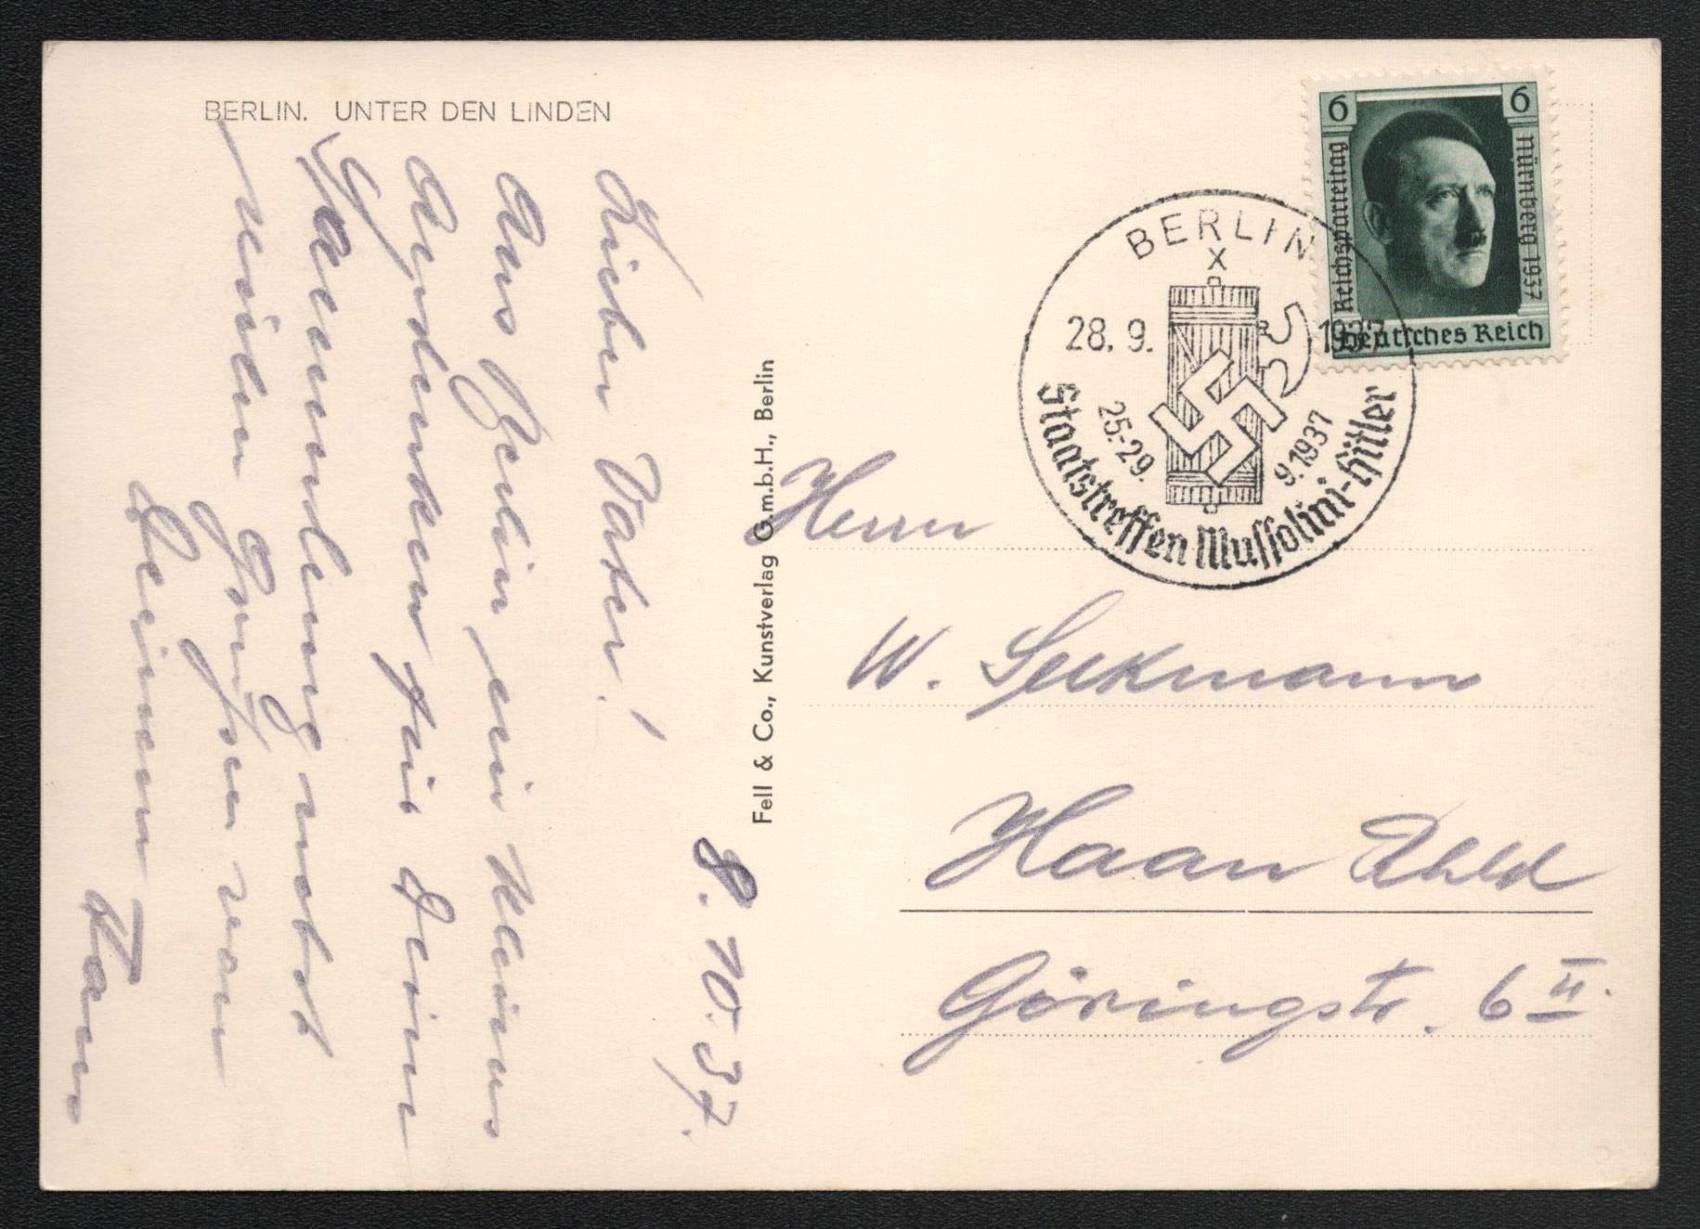 BERLIN. UNTER DEN LINDEN
8. 10. 37.
Lieber Vater!
Aus Berlin ein kleines
Andenken für Deine
Sammlung nebst
vielen Grüßen von
Deinem
Hans
Fell & Co., Kunstverlag G.m.b.H., Berlin
6 6
Reichsparteitag
Nürnberg 1937
Deutsches Reich
BERLIN
X
28. 9. 1937
25.-29. 9. 1937
Staatstreffen Mussolini-Hitler
Herrn
W.
Haan Rhld
Göringstr. 6 II.